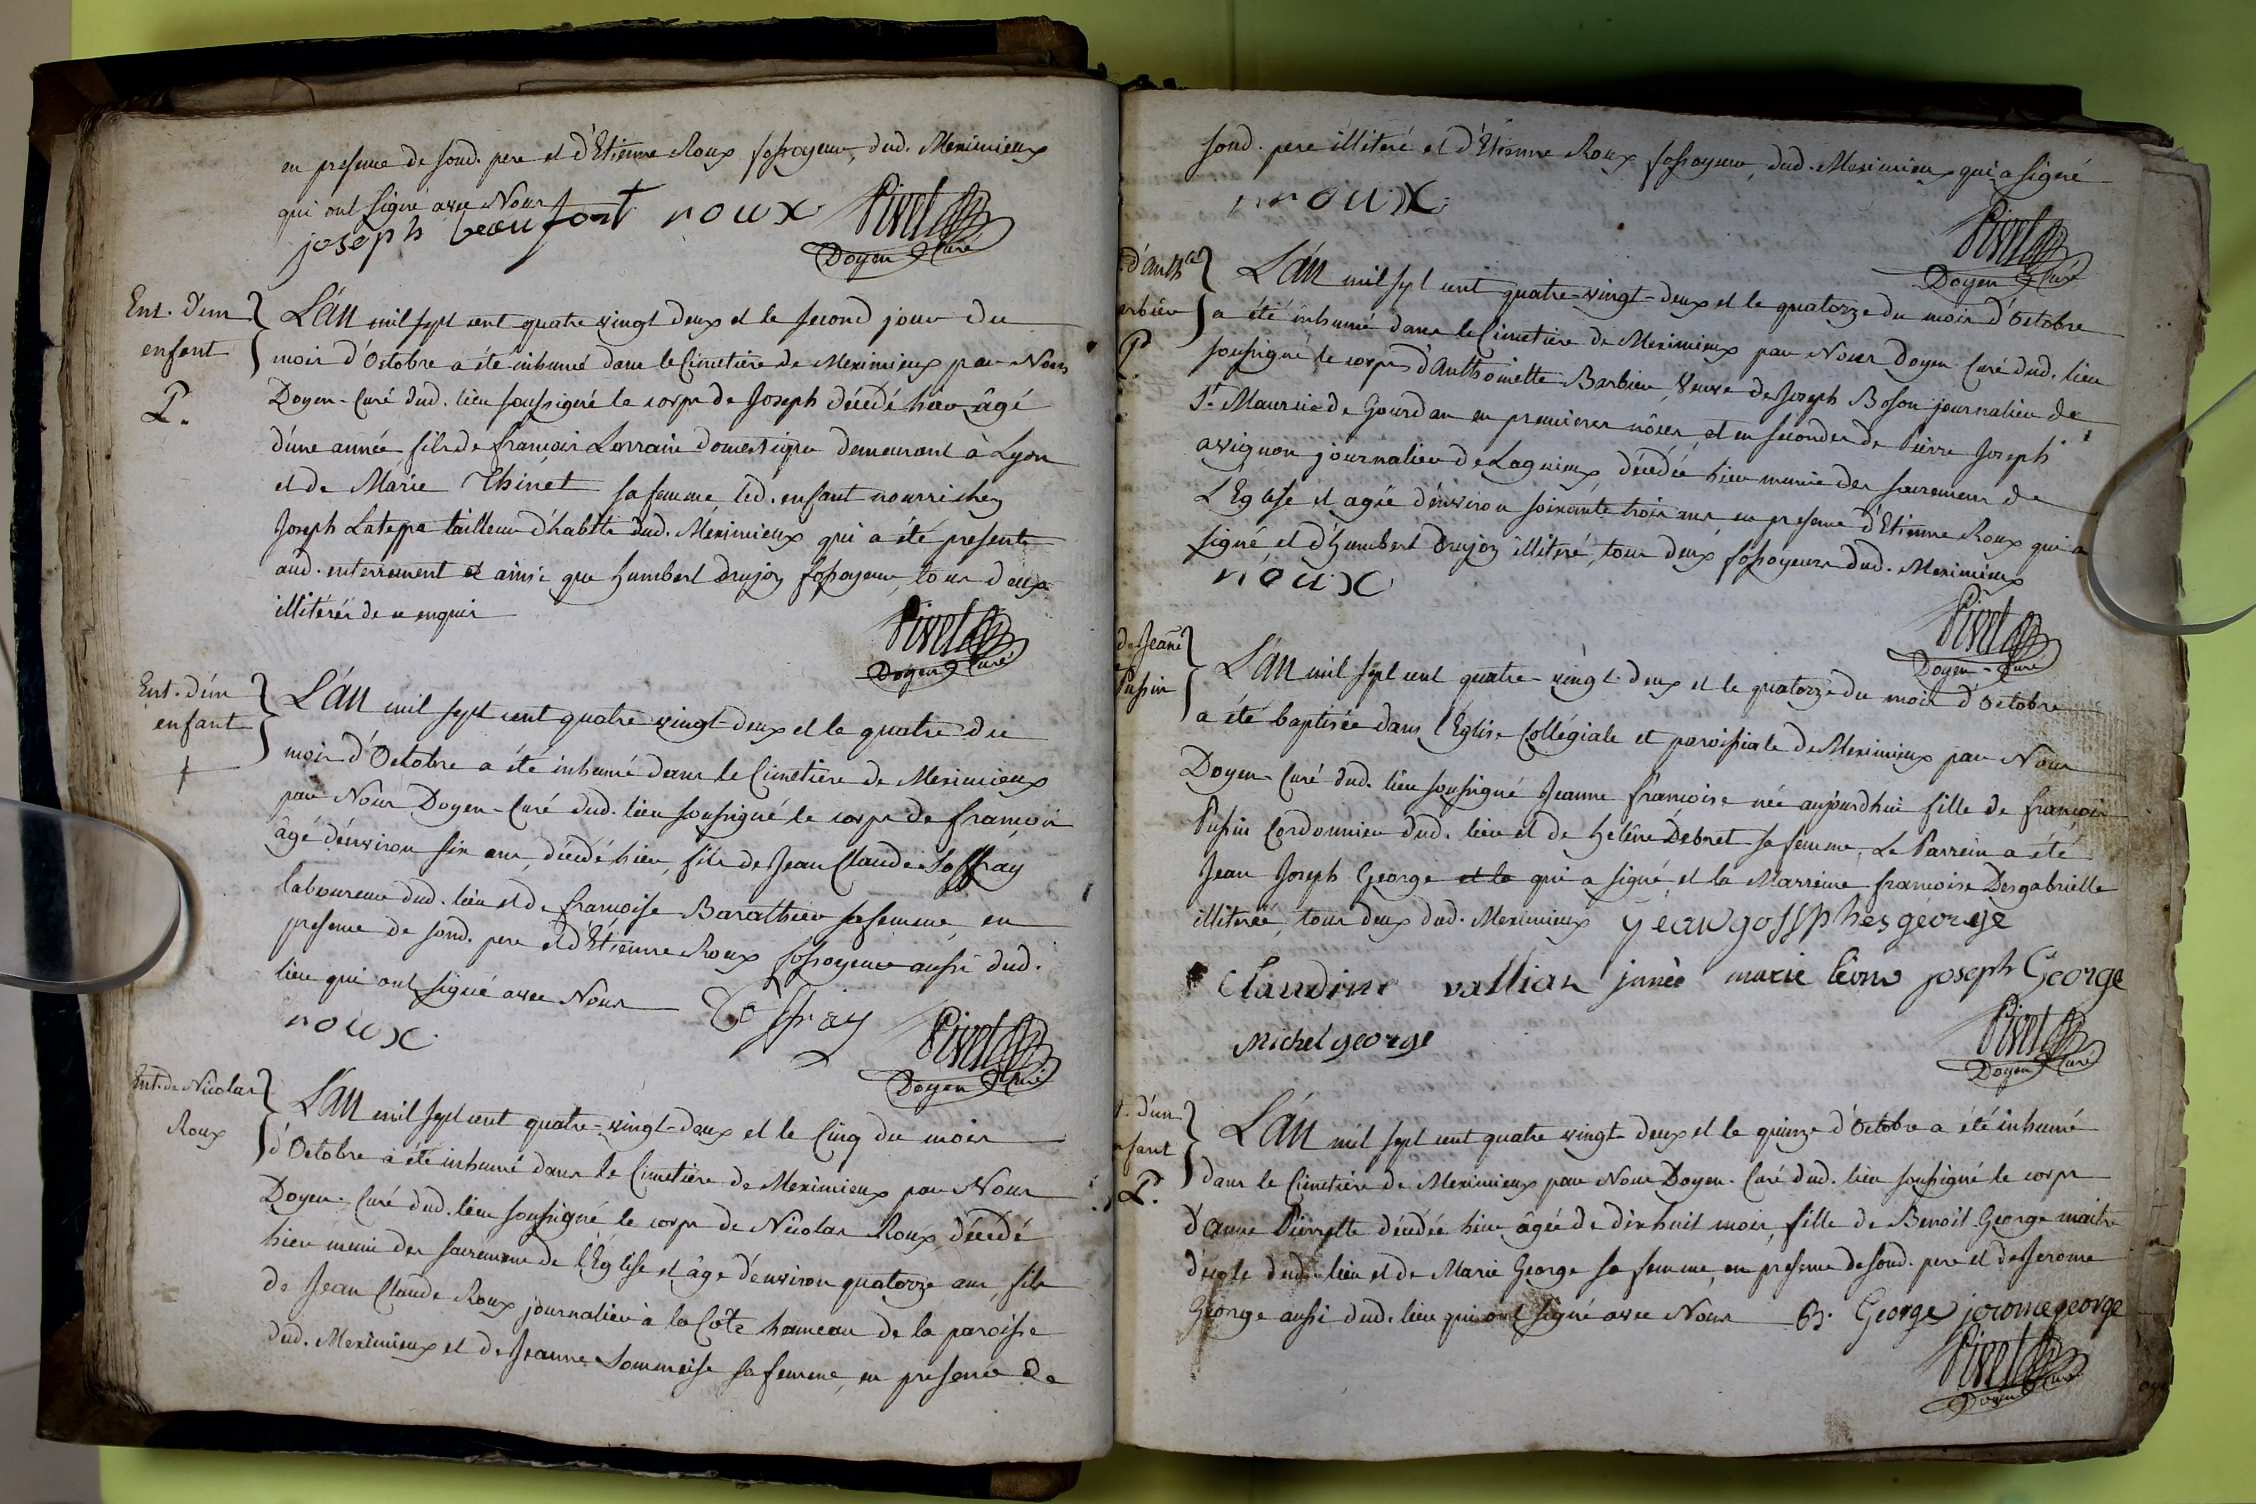 en presence de sond. pere et d'Etienne Roux fossoyeur, dud. Meximieux
qui ont signé avec Nous
joseph beaufort roux Pivet
Doyen Curé
Ent. d'un
enfant
P.
L'an mil sept cent quatre vingt deux et le second jour du
mois d'Octobre a été inhumé dans le Cimetière de Meximieux par Nous
Doyen-Curé dud. lieu soussigné le corps de Joseph décédé hier âgé
d'une année fils de françois Lorrain domestique demeurant à Lyon
et de Marie Thinet sa femme led. enfant nourri chez
Joseph Lateppe tailleur d'habits dud. Méximieux qui a été present
aud. enterrement et ainsi que humbert Drujon fossoyeur, tous deux
illitérés de ce enquis
Pivet
Doyen Curé
Ent. d'un
enfant
L'an mil sept cent quatre vingt-deux et le quatre du
mois d'Octobre a été inhumé dans le Cimetière de Meximieux
par Nous Doyen-Curé dud. lieu soussigné le corps de françois
âgé d'environ six ans, décédé hier, fils de Jean Claude Joffray
laboureur dud. lieu et de françoise Barathieu sa femme, en
presence de sond. pere et d'Etienne Roux fossoyeur aussi dud.
lieu qui ont signé avec Nous Joffray
roux Pivet
Doyen Curé
Ent. de Nicolas
Roux
L'an mil sept cent quatre-vingt-deux et le Cinq du mois
d'Octobre a été inhumé dans le Cimetière de Meximieux par Nous
Doyen-Curé dud. lieu soussigné le corps de Nicolas Roux, décédé
hier muni des sacremens de l'Eglise et âgé d'environ quatorze ans, fils
de Jean Claude Roux journalier à la Côte hameau de la paroisse
dud. Meximieux et de Jeanne Sommeise sa femme, en presence de
sond. pere illiteré et d'Etienne Roux fossoyeur, dud. Meximieux qui a signé
roux
Pivet
Doyen Curé
d'Anth.te
arbier
P
L'an mil sept cent quatre-vingt-deux et le quatorze du mois d'Octobre
a été inhumé dans le Cimetière de Meximieux par Nous Doyen Curé dud. lieu
soussigné le corps d'Anthoinette Barbier, Veuve de Joseph Boson journalier de
St Maurice de Gourdan en premieres nôces, et en secondes de Pierre Joseph
avignon journalier de Lagnieux, décédée hier munie des sacremens de
L'Eglise et agée d'environ soixante trois ans en presence d'Etienne Roux qui a
signé et d'humbert Drujon illiteré, tous deux fossoyeurs dud. Meximieux
roux
Pivet
Doyen-Curé
de Jeañe
Pussin
L'an mil sept cent quatre-vingt-deux et le quatorze du mois d'Octobre
a été baptisée dans l'Eglise Collégiale et paroissiale de Meximieux par Nous
Doyen-Curé dud. lieu soussigné Jeanne françoise née aujourdhui fille de françois
Pussin Cordonnier dud. lieu et de heléne Debret sa femme, Le Parrein a été
Jean Joseph George et la qui a signé, et la Marreine françoise Desgabrielle
illiterée, tous deux dud. Meximieux yéan gossphes géorge
Claudine vallian marie léons joseph George
Michel george
Pivet
Doyen Curé
t. d'un
nfant
P.
L'an mil sept cent quatre vingt-deux et le quinze d'Octobre a été inhumé
dans le Cimetière de Meximieux par Nous Doyen-Curé dud. lieu soussigné le corps
d'anne Pierrette décédée hier âgée de dix huit mois, fille de Benoit George maitre
d'ecole dud. lieu et de Marie George sa femme, en presence de sond. pere et de Jerome
George aussi dud. lieu qui ont signé avec Nous B. George jerome george
Pivet
Doyen Curé